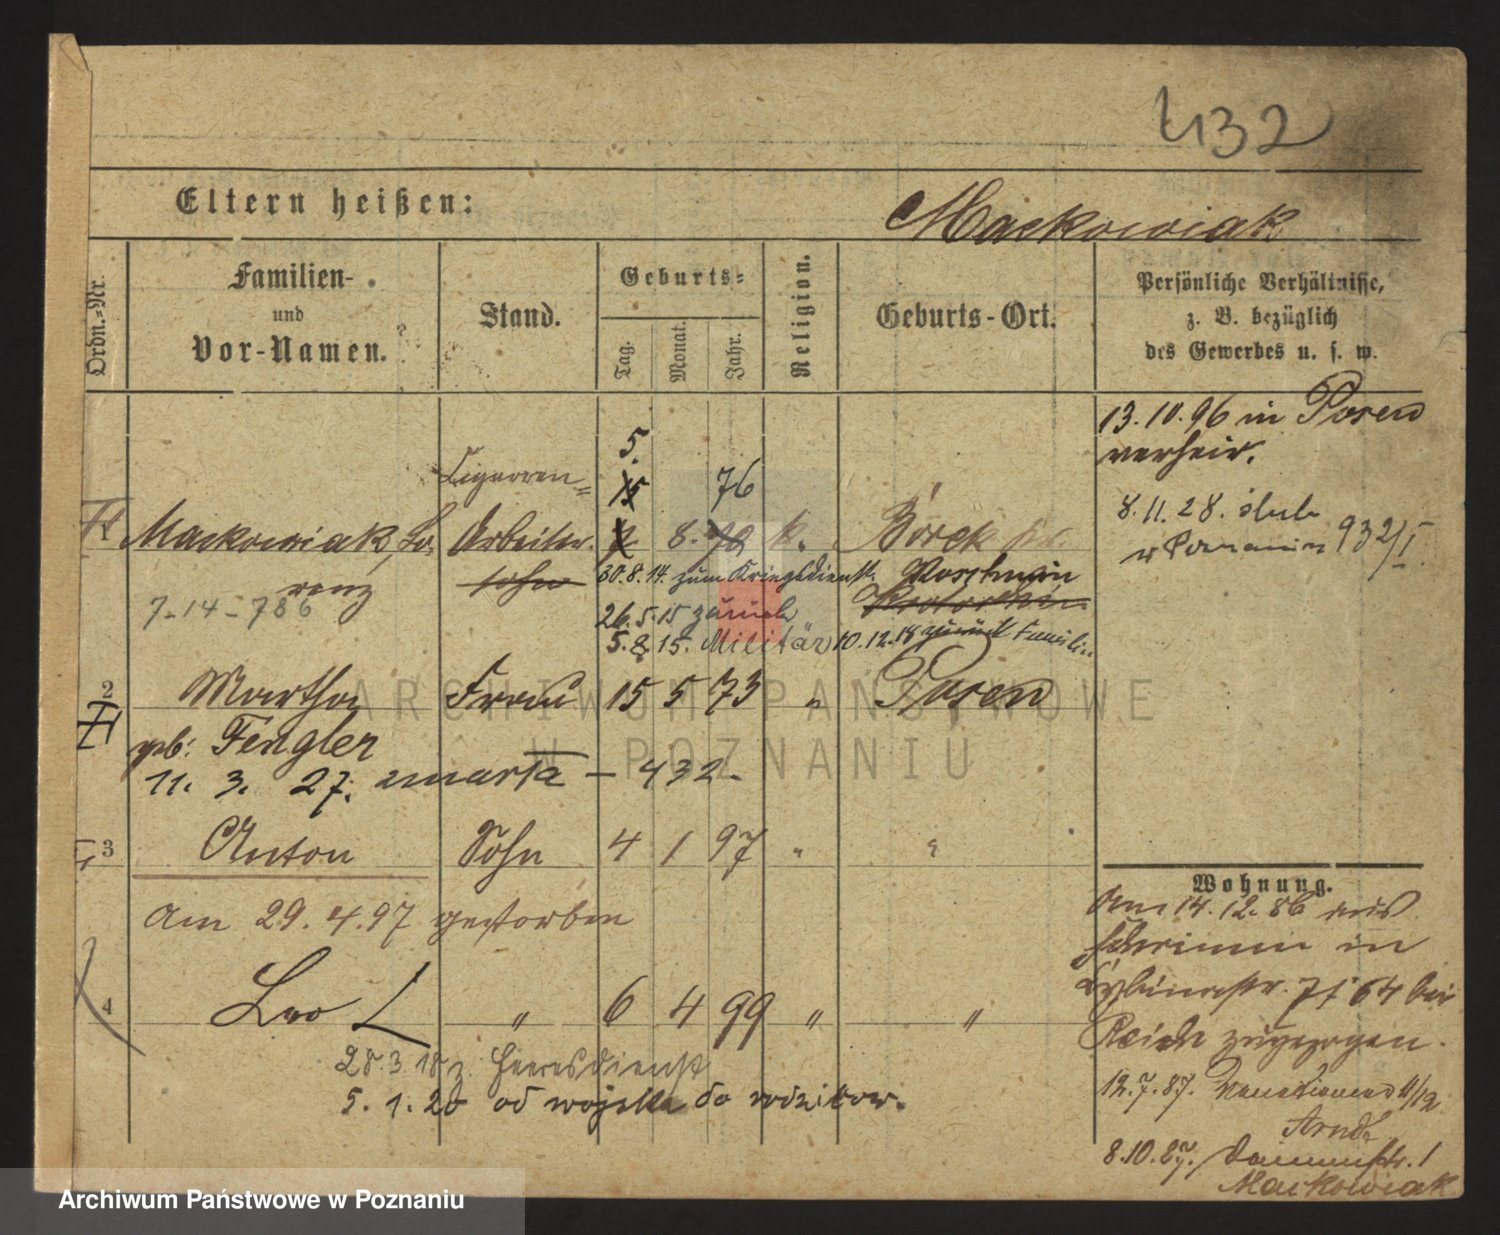 432
Eltern heißen:
Mackowiak
Ordn.-Nr.
Familien-
und
Vor-Namen.
Stand.
Geburts-
Tag.
Monat.
Jahr.
Religion.
Geburts-Ort.
Persönliche Verhältnisse,
z. B. bezüglich
des Gewerbes u. s. w.
13. 10. 96 in Posen
verheir.
8. 11. 28. 932/I
5.
Cigarren-
15 76
1 Mackowiak, Lo- Arbeiter 8. 79 k. Borek
renz sohn 30. 8. 14. zum Kriegsdienst. Koschmin
7-14-786 26. 5. 15 zurück Krotoschin
5. 8. 15. Militär 10. 12. 18 zurück Familie
2 Martha Frau 15 5 73 " Posen
geb: Fengler
11. 3. 27. zmarła – 432.
3 Anton Sohn 4 1 97 " "
am 29. 4. 97 gestorben
4 Leo " 6 4 99 " "
28. 3. 18 z. Heeresdienst
5. 1. 20 od wojska do rodziców.
Wohnung.
Am 14. 12. 86 aus
Schrimm in
64 bei
Reich zugezogen.
12. 7. 87. Venetianerst 11/12
Arndt
8. 10. 87. Dammstr. 1
Mackowiak
ARCHIWUM PAŃSTWOWE
W POZNANIU
Archiwum Państwowe w Poznaniu